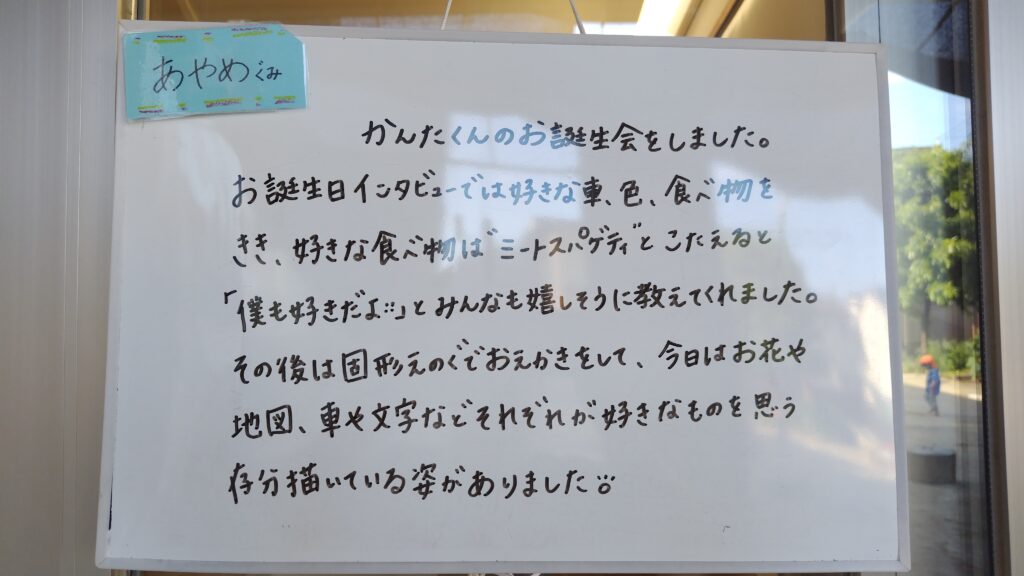 あやめぐみ
かんたくんのお誕生会をしました。
お誕生日インタビューでは好きな車、色、食べ物を
きき、好きな食べ物は"ミートスパゲティ"とこたえると
「僕も好きだよ::」とみんなも嬉しそうに教えてくれました。
その後は固形えのぐでおえかきをして、今日はお花や
地図、車や文字などそれぞれが好きなものを思う
存分描いている姿がありました